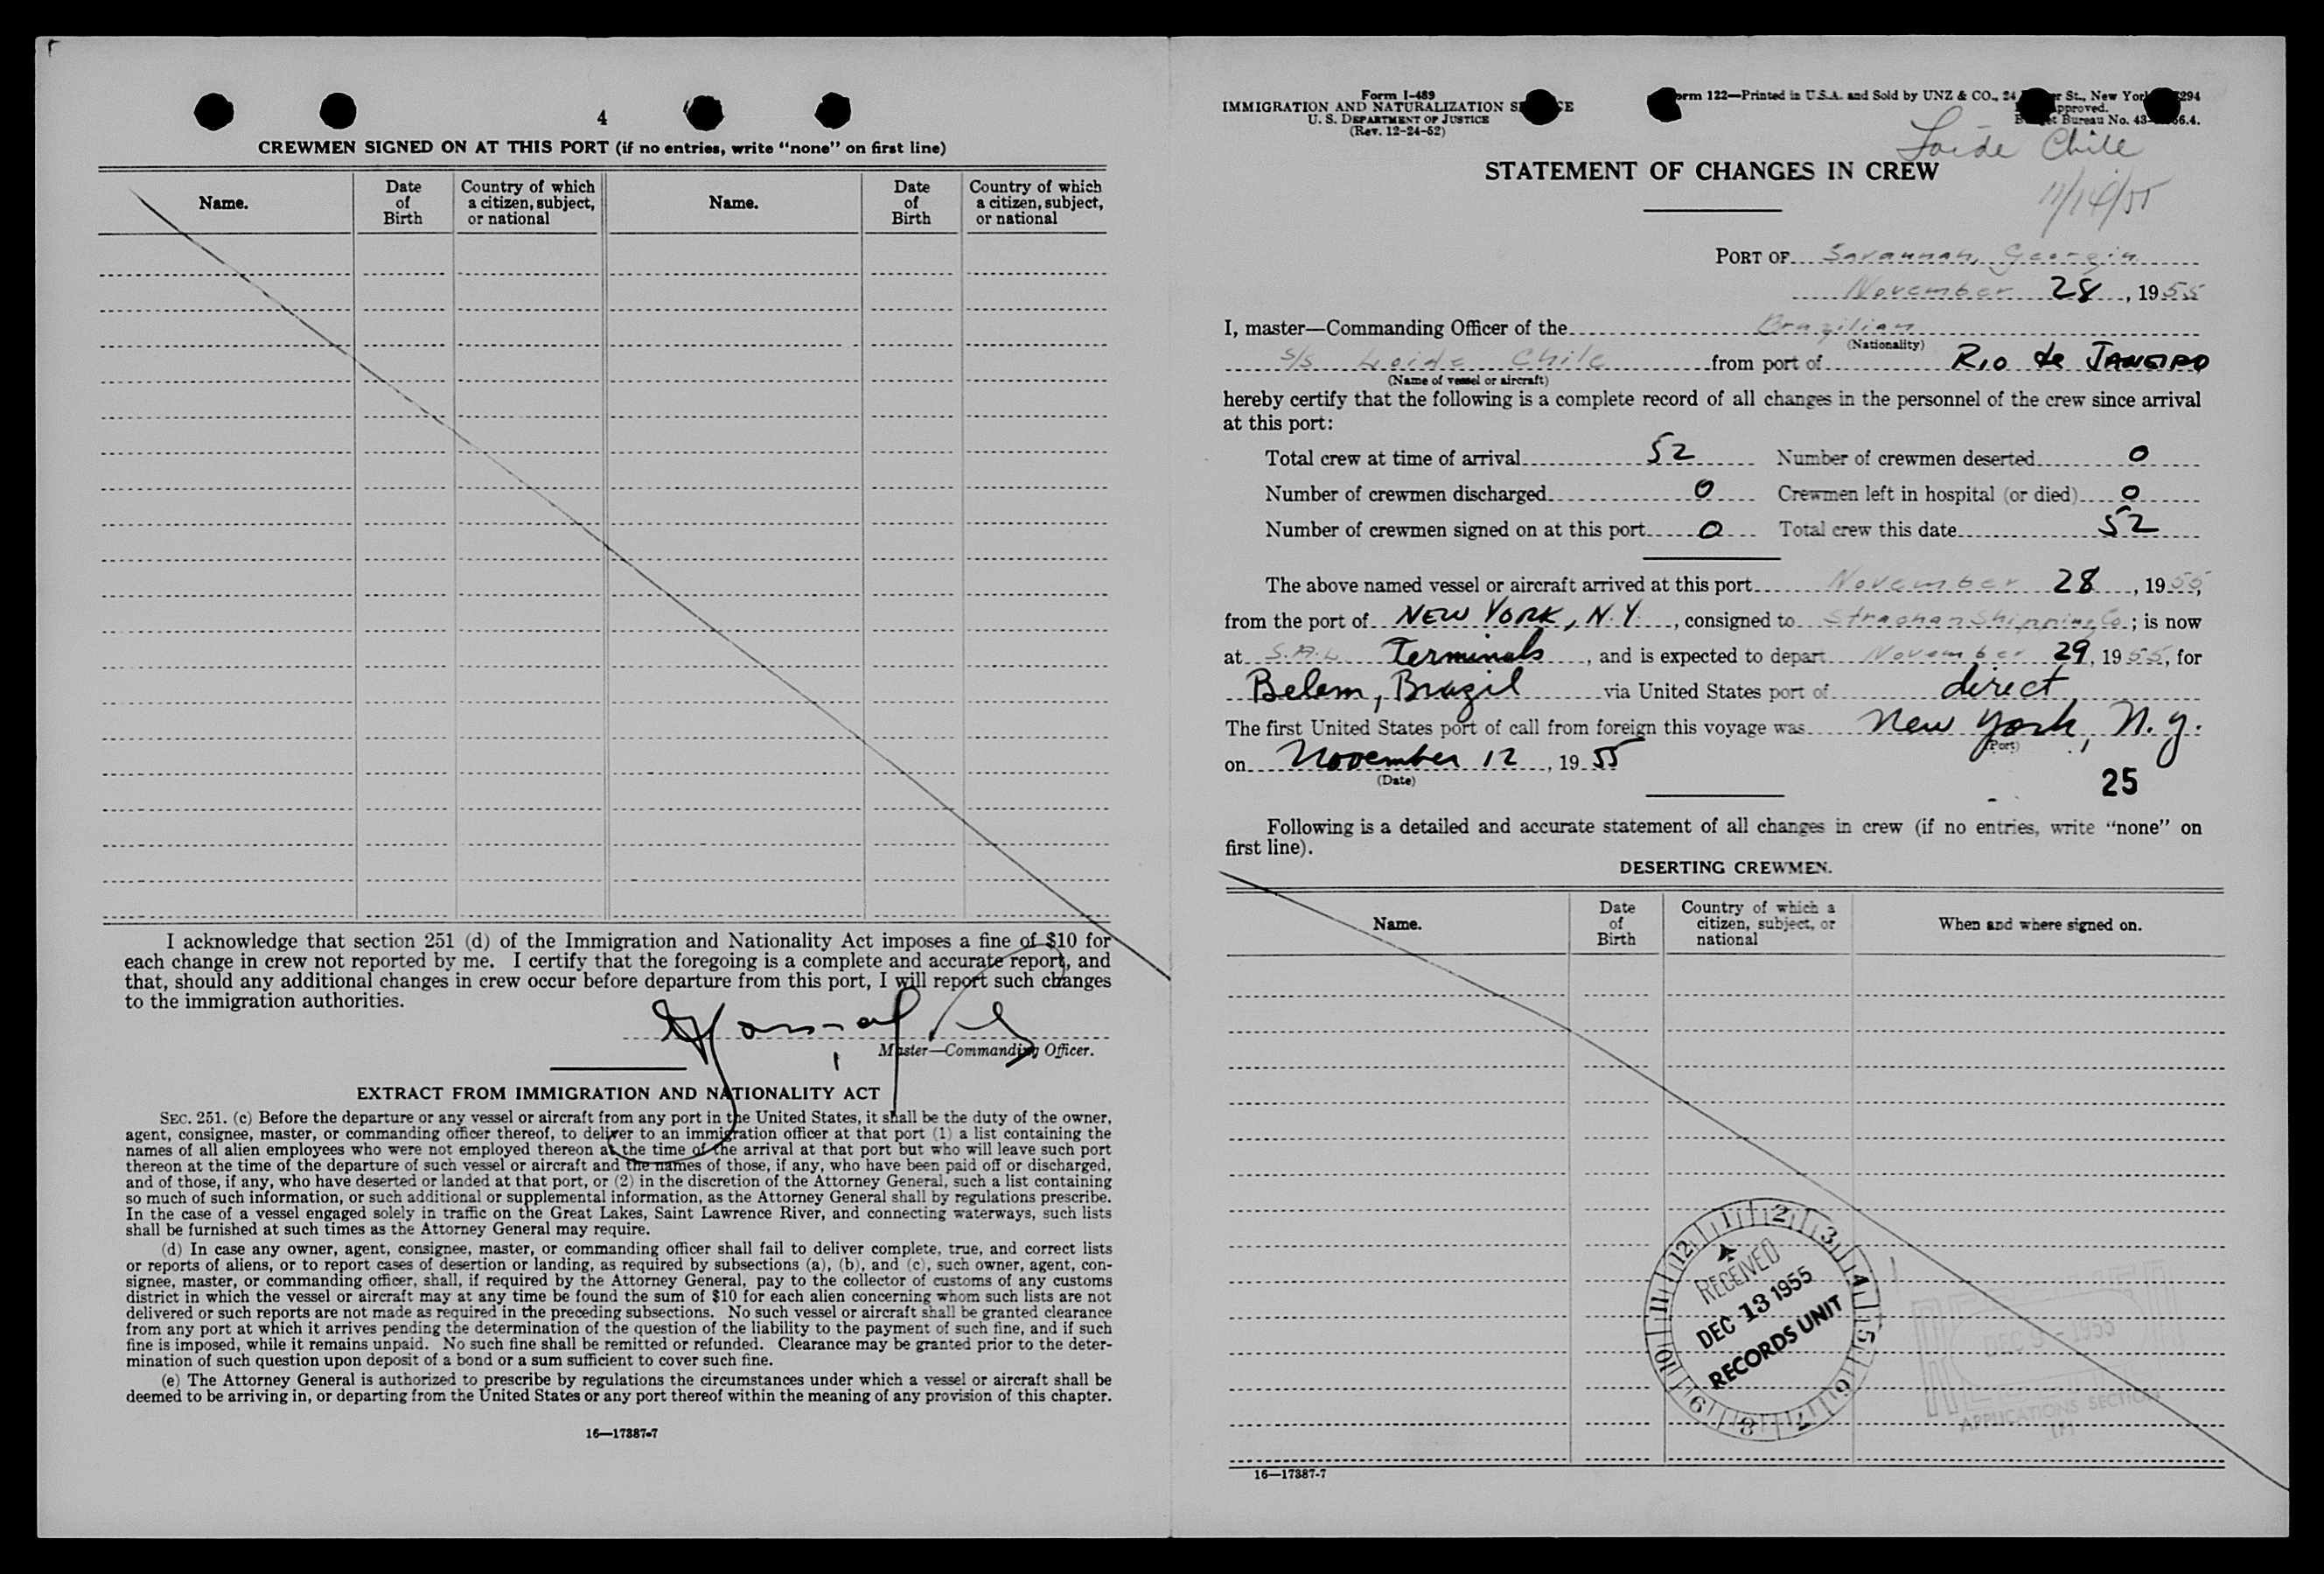 4
CREWMEN SIGNED ON AT THIS PORT (if no entries, write "none" on first line)
Name. Date of Birth Country of which a citizen, subject, or national Name. Date of Birth Country of which a citizen, subject, or national
I acknowledge that section 251 (d) of the Immigration and Nationality Act imposes a fine of $10 for
each change in crew not reported by me. I certify that the foregoing is a complete and accurate report, and
that, should any additional changes in crew occur before departure from this port, I will report such changes
to the immigration authorities.
Master—Commanding Officer.
EXTRACT FROM IMMIGRATION AND NATIONALITY ACT
SEC. 251. (c) Before the departure or any vessel or aircraft from any port in the United States, it shall be the duty of the owner,
agent, consignee, master, or commanding officer thereof, to deliver to an immigration officer at that port (1) a list containing the
names of all alien employees who were not employed thereon at the time of the arrival at that port but who will leave such port
thereon at the time of the departure of such vessel or aircraft and the names of those, if any, who have been paid off or discharged,
and of those, if any, who have deserted or landed at that port, or (2) in the discretion of the Attorney General, such a list containing
so much of such information, or such additional or supplemental information, as the Attorney General shall by regulations prescribe.
In the case of a vessel engaged solely in traffic on the Great Lakes, Saint Lawrence River, and connecting waterways, such lists
shall be furnished at such times as the Attorney General may require.
(d) In case any owner, agent, consignee, master, or commanding officer shall fail to deliver complete, true, and correct lists
or reports of aliens, or to report cases of desertion or landing, as required by subsections (a), (b), and (c), such owner, agent, con-
signee, master, or commanding officer, shall, if required by the Attorney General, pay to the collector of customs of any customs
district in which the vessel or aircraft may at any time be found the sum of $10 for each alien concerning whom such lists are not
delivered or such reports are not made as required in the preceding subsections. No such vessel or aircraft shall be granted clearance
from any port at which it arrives pending the determination of the question of the liability to the payment of such fine, and if such
fine is imposed, while it remains unpaid. No such fine shall be remitted or refunded. Clearance may be granted prior to the deter-
mination of such question upon deposit of a bond or a sum sufficient to cover such fine.
(e) The Attorney General is authorized to prescribe by regulations the circumstances under which a vessel or aircraft shall be
deemed to be arriving in, or departing from the United States or any port thereof within the meaning of any provision of this chapter.
16—17387-7
Form I-489
IMMIGRATION AND NATURALIZATION
U. S. DEPARTMENT OF JUSTICE
(Rev. 12-24-52)
122—Printed in U.S.A. and Sold by UNZ & CO., 24 St., New York
Bureau No. 43-
Loide Chile
11/14/55
STATEMENT OF CHANGES IN CREW
PORT OF Savannah, Georgia
November 28, 1955
I, master—Commanding Officer of the Brazilian
(Nationality)
S/S Loide Chile from port of RIO de JANEIRO
(Name of vessel or aircraft)
hereby certify that the following is a complete record of all changes in the personnel of the crew since arrival
at this port:
Total crew at time of arrival 52 Number of crewmen deserted 0
Number of crewmen discharged 0 Crewmen left in hospital (or died) 0
Number of crewmen signed on at this port 0 Total crew this date 52
The above named vessel or aircraft arrived at this port November 28, 1955,
from the port of NEW YORK, N.Y., consigned to Strachan Shipping Co.; is now
at S.A.L. Terminals, and is expected to depart November 29, 1955, for
Belem, Brazil via United States port of direct
The first United States port of call from foreign this voyage was New York, N.Y.
(Port)
on November 12, 1955
(Date)
25
Following is a detailed and accurate statement of all changes in crew (if no entries, write "none" on
first line).
DESERTING CREWMEN.
Name. Date of Birth Country of which a citizen, subject, or national When and where signed on.
1 2 3 4 5 6 7 8 9 10 11 12
RECEIVED
DEC 13 1955
RECORDS UNIT
DEC 9 - 1955
APPLICATIONS SECTION
16—17387-7